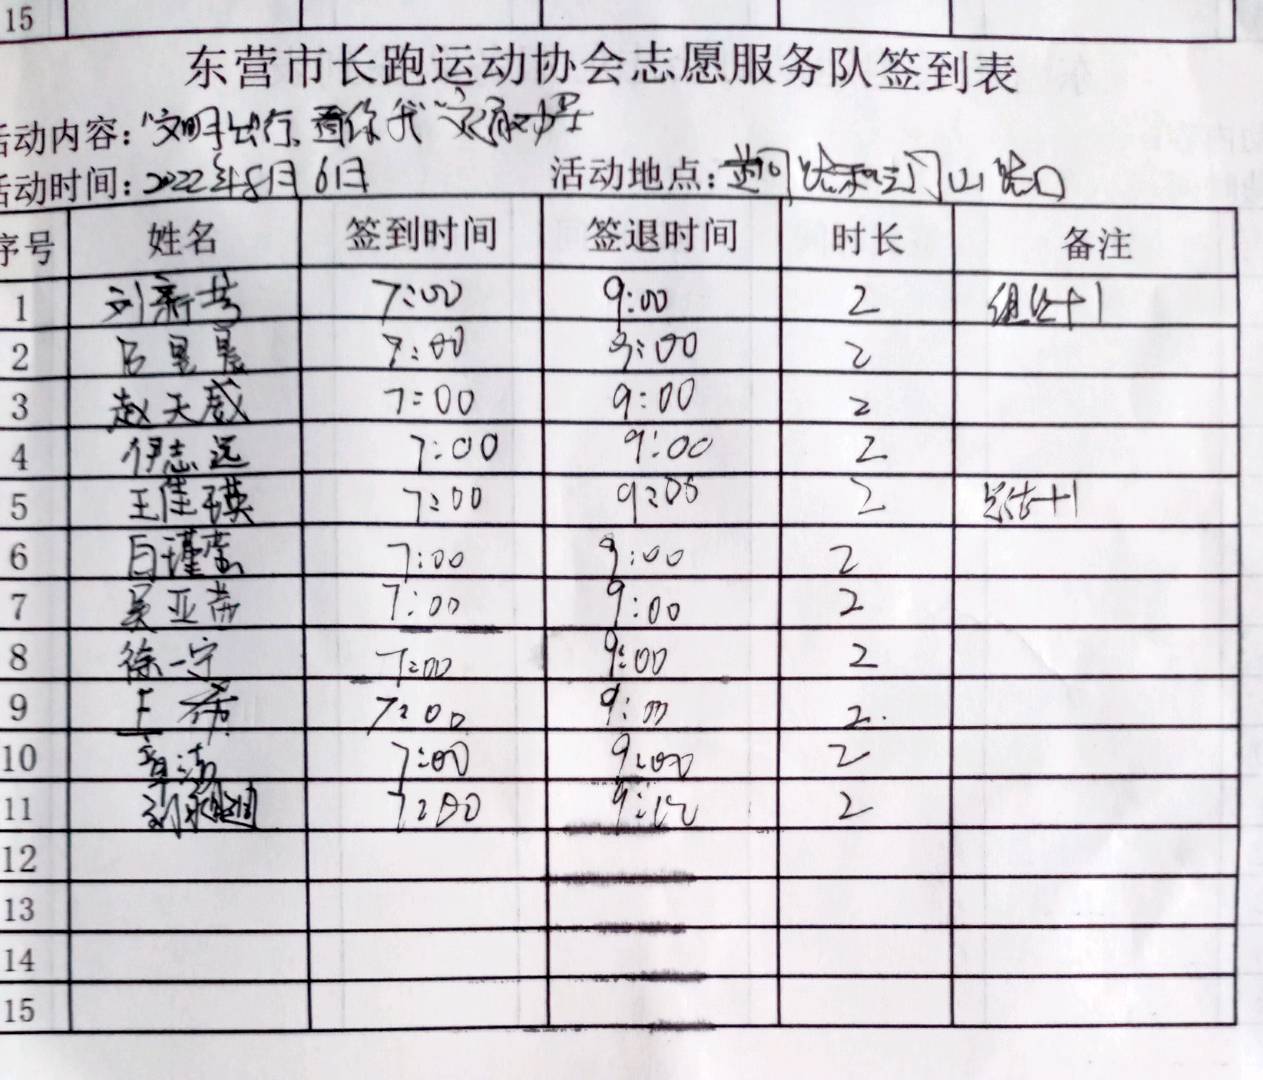 15
东营市长跑运动协会志愿服务队签到表
活动内容："文明出行
活动时间：2022年8月6日 活动地点： 路口
序号 姓名 签到时间 签退时间 时长 备注
1 刘新芳 7:00 9:00 2 +1
2 7:00 9:00 2
3 赵天威 7:00 9:00 2
4 伊志远 7:00 9:00 2
5 王佳瑛 7:00 9:00 2 总结+1
6 7:00 9:00 2
7 吴亚茜 7:00 9:00 2
8 徐一宁 7:00 9:00 2
9 7:00 9:00 2
10 7:00 9:00 2
11 7:00 2
12
13
14
15